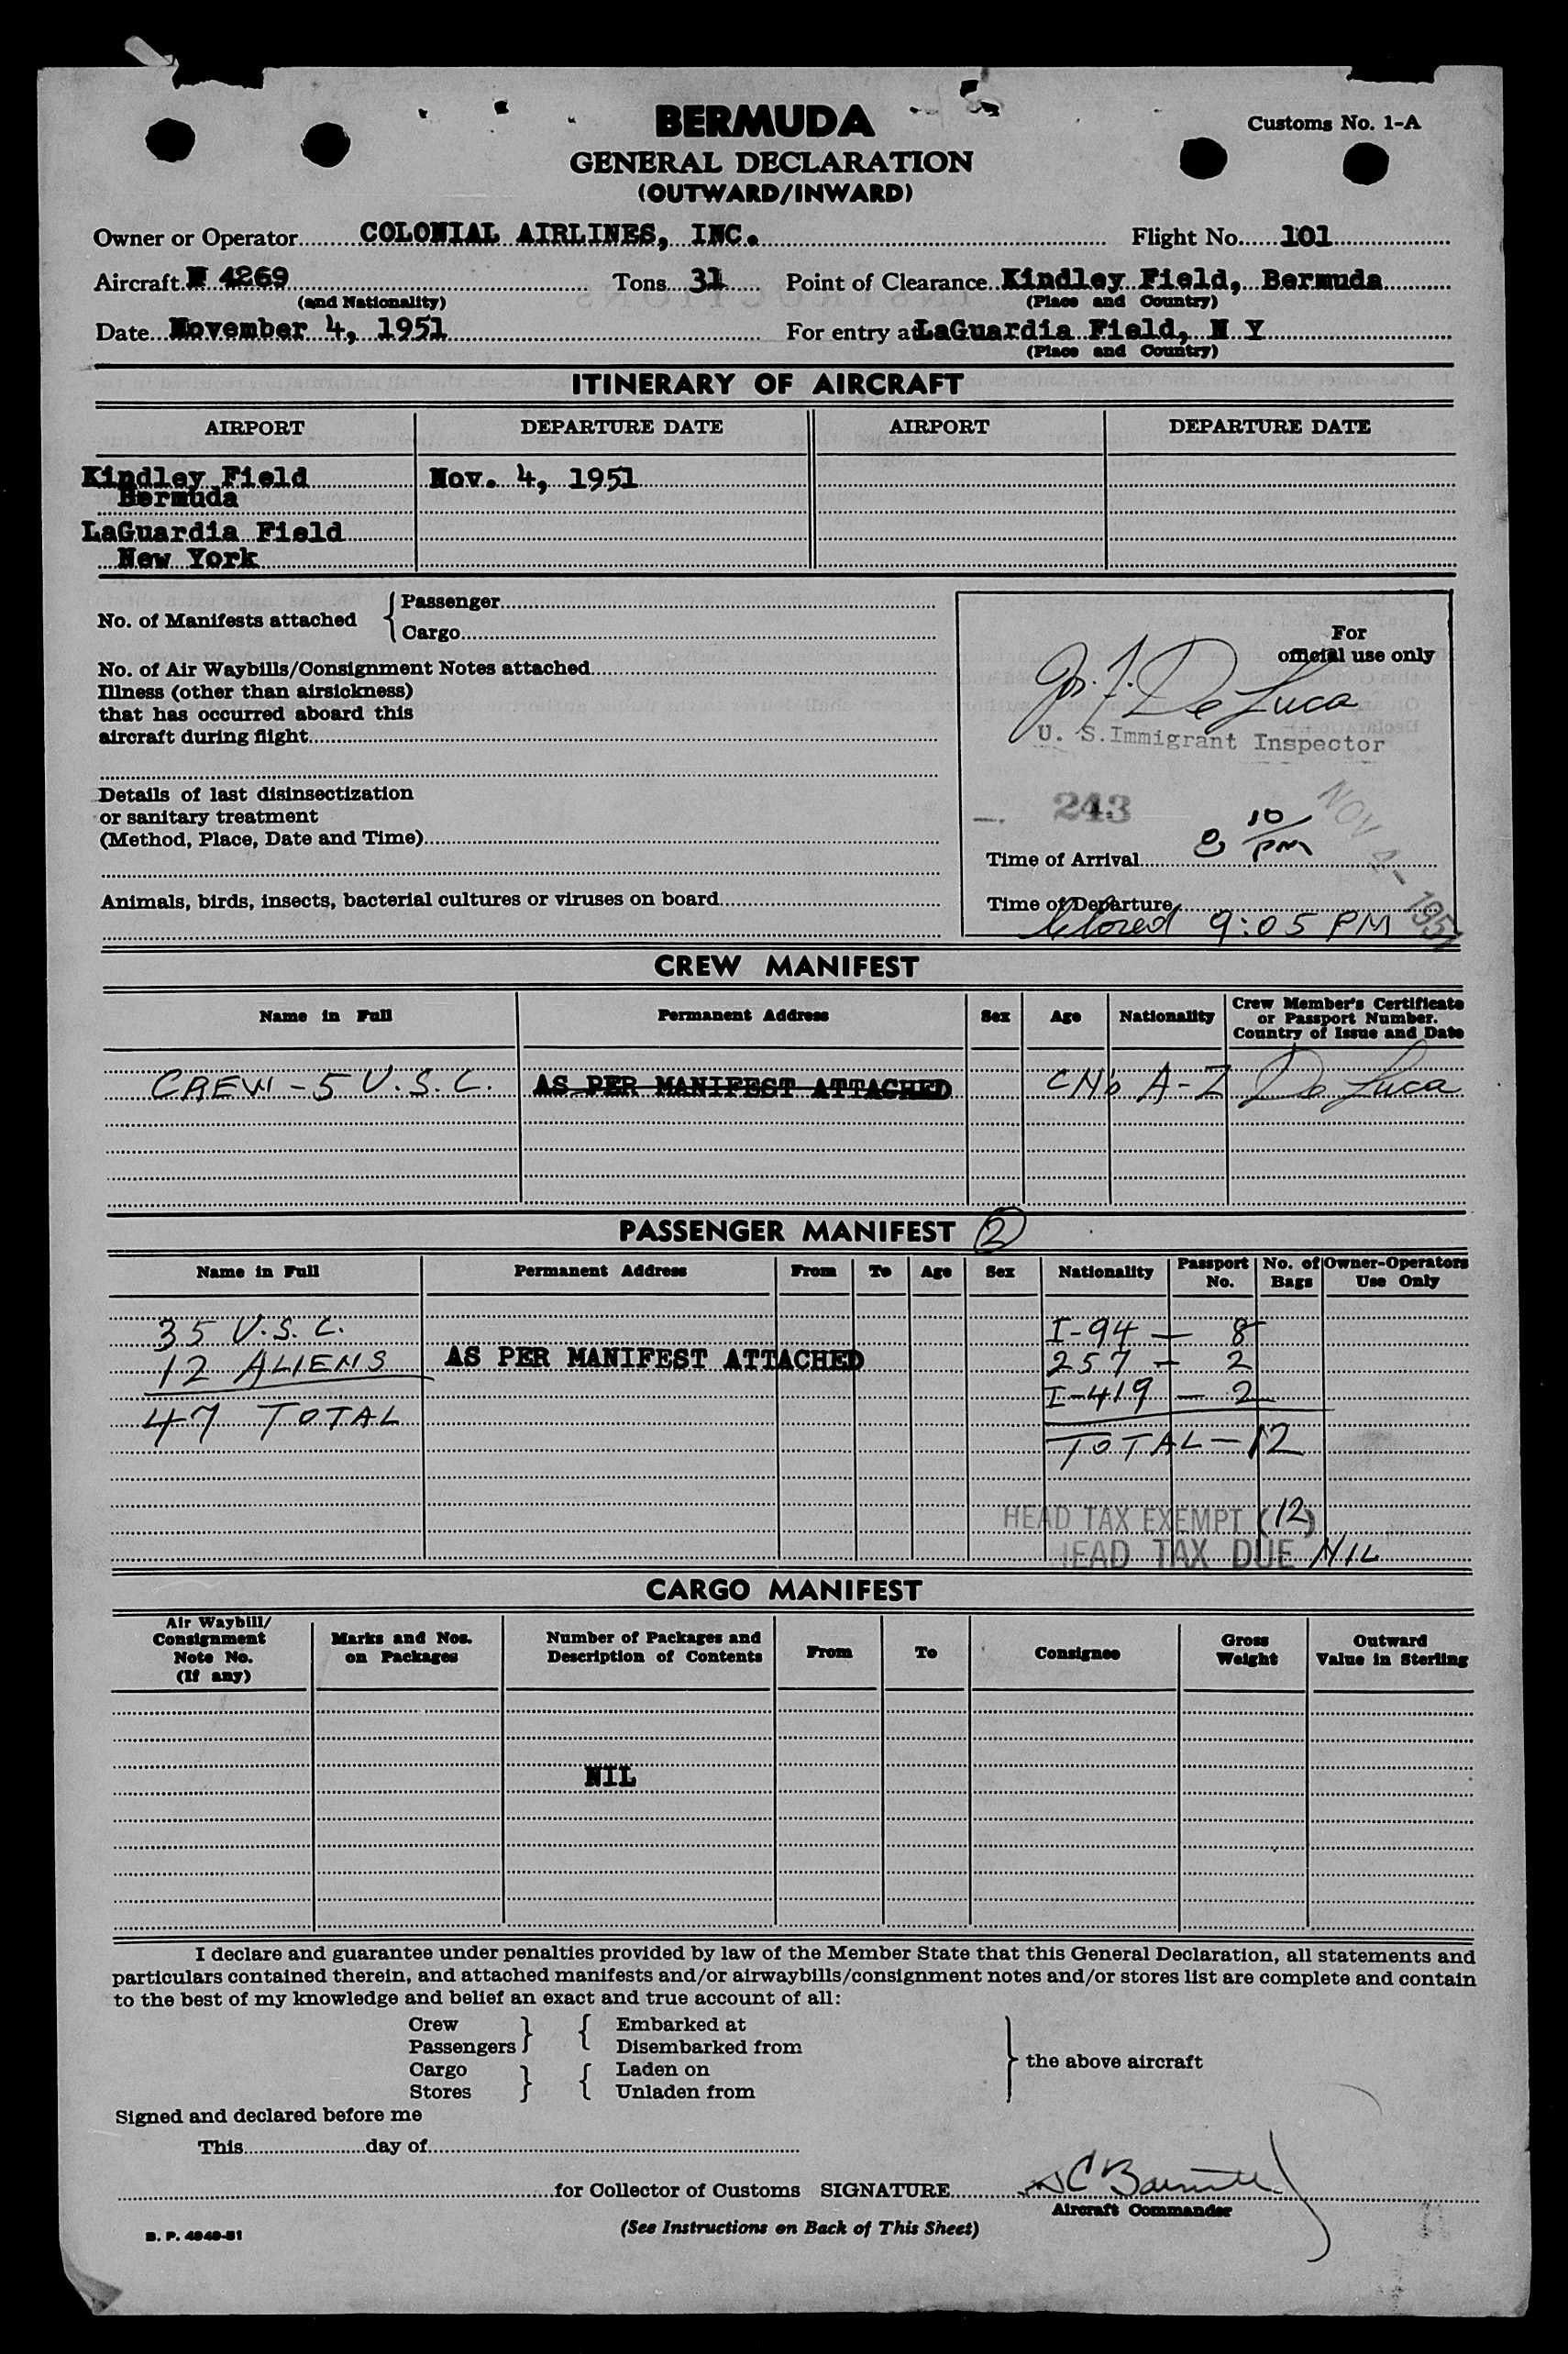 BERMUDA
Customs No. 1-A
GENERAL DECLARATION
(OUTWARD/INWARD)
Owner or Operator COLONIAL AIRLINES, INC. Flight No. 101
Aircraft N 4269 Tons 31 Point of Clearance Kindley Field, Bermuda
(and Nationality) (Place and Country)
Date November 4, 1951 For entry at LaGuardia Field, N Y
(Place and Country)
ITINERARY OF AIRCRAFT
AIRPORT DEPARTURE DATE AIRPORT DEPARTURE DATE
Kindley Field Nov. 4, 1951
Bermuda
LaGuardia Field
New York
No. of Manifests attached { Passenger
Cargo
No. of Air Waybills/Consignment Notes attached
Illness (other than airsickness)
that has occurred aboard this
aircraft during flight
Details of last disinsectization
or sanitary treatment
(Method, Place, Date and Time)
Animals, birds, insects, bacterial cultures or viruses on board
For
official use only
Jos. J. De Luca
U. S. Immigrant Inspector
243
NOV 4 - 1951
Time of Arrival 8 10/PM
Time of Departure
Closed 9:05 PM
CREW MANIFEST
Name in Full Permanent Address Sex Age Nationality Crew Member's Certificate or Passport Number. Country of Issue and Date
CREW - 5 U.S.C. AS PER MANIFEST ATTACHED A-Z De Luca
PASSENGER MANIFEST 2
Name in Full Permanent Address From To Age Sex Nationality Passport No. No. of Bags Owner-Operators Use Only
35 U.S.C. I-94 — 8
12 ALIENS AS PER MANIFEST ATTACHED 257 — 2
I-419 — 2
47 TOTAL
TOTAL — 12
HEAD TAX EXEMPT (12)
HEAD TAX DUE NIL
CARGO MANIFEST
Air Waybill/ Consignment Note No. (If any) Marks and Nos. on Packages Number of Packages and Description of Contents From To Consignee Gross Weight Outward Value in Sterling
NIL
I declare and guarantee under penalties provided by law of the Member State that this General Declaration, all statements and
particulars contained therein, and attached manifests and/or airwaybills/consignment notes and/or stores list are complete and contain
to the best of my knowledge and belief an exact and true account of all:
Crew } { Embarked at
Passengers Disembarked from
Cargo } { Laden on } the above aircraft
Stores Unladen from
Signed and declared before me
This day of
for Collector of Customs SIGNATURE
Aircraft Commander
(See Instructions on Back of This Sheet)
B. P. 4949-51